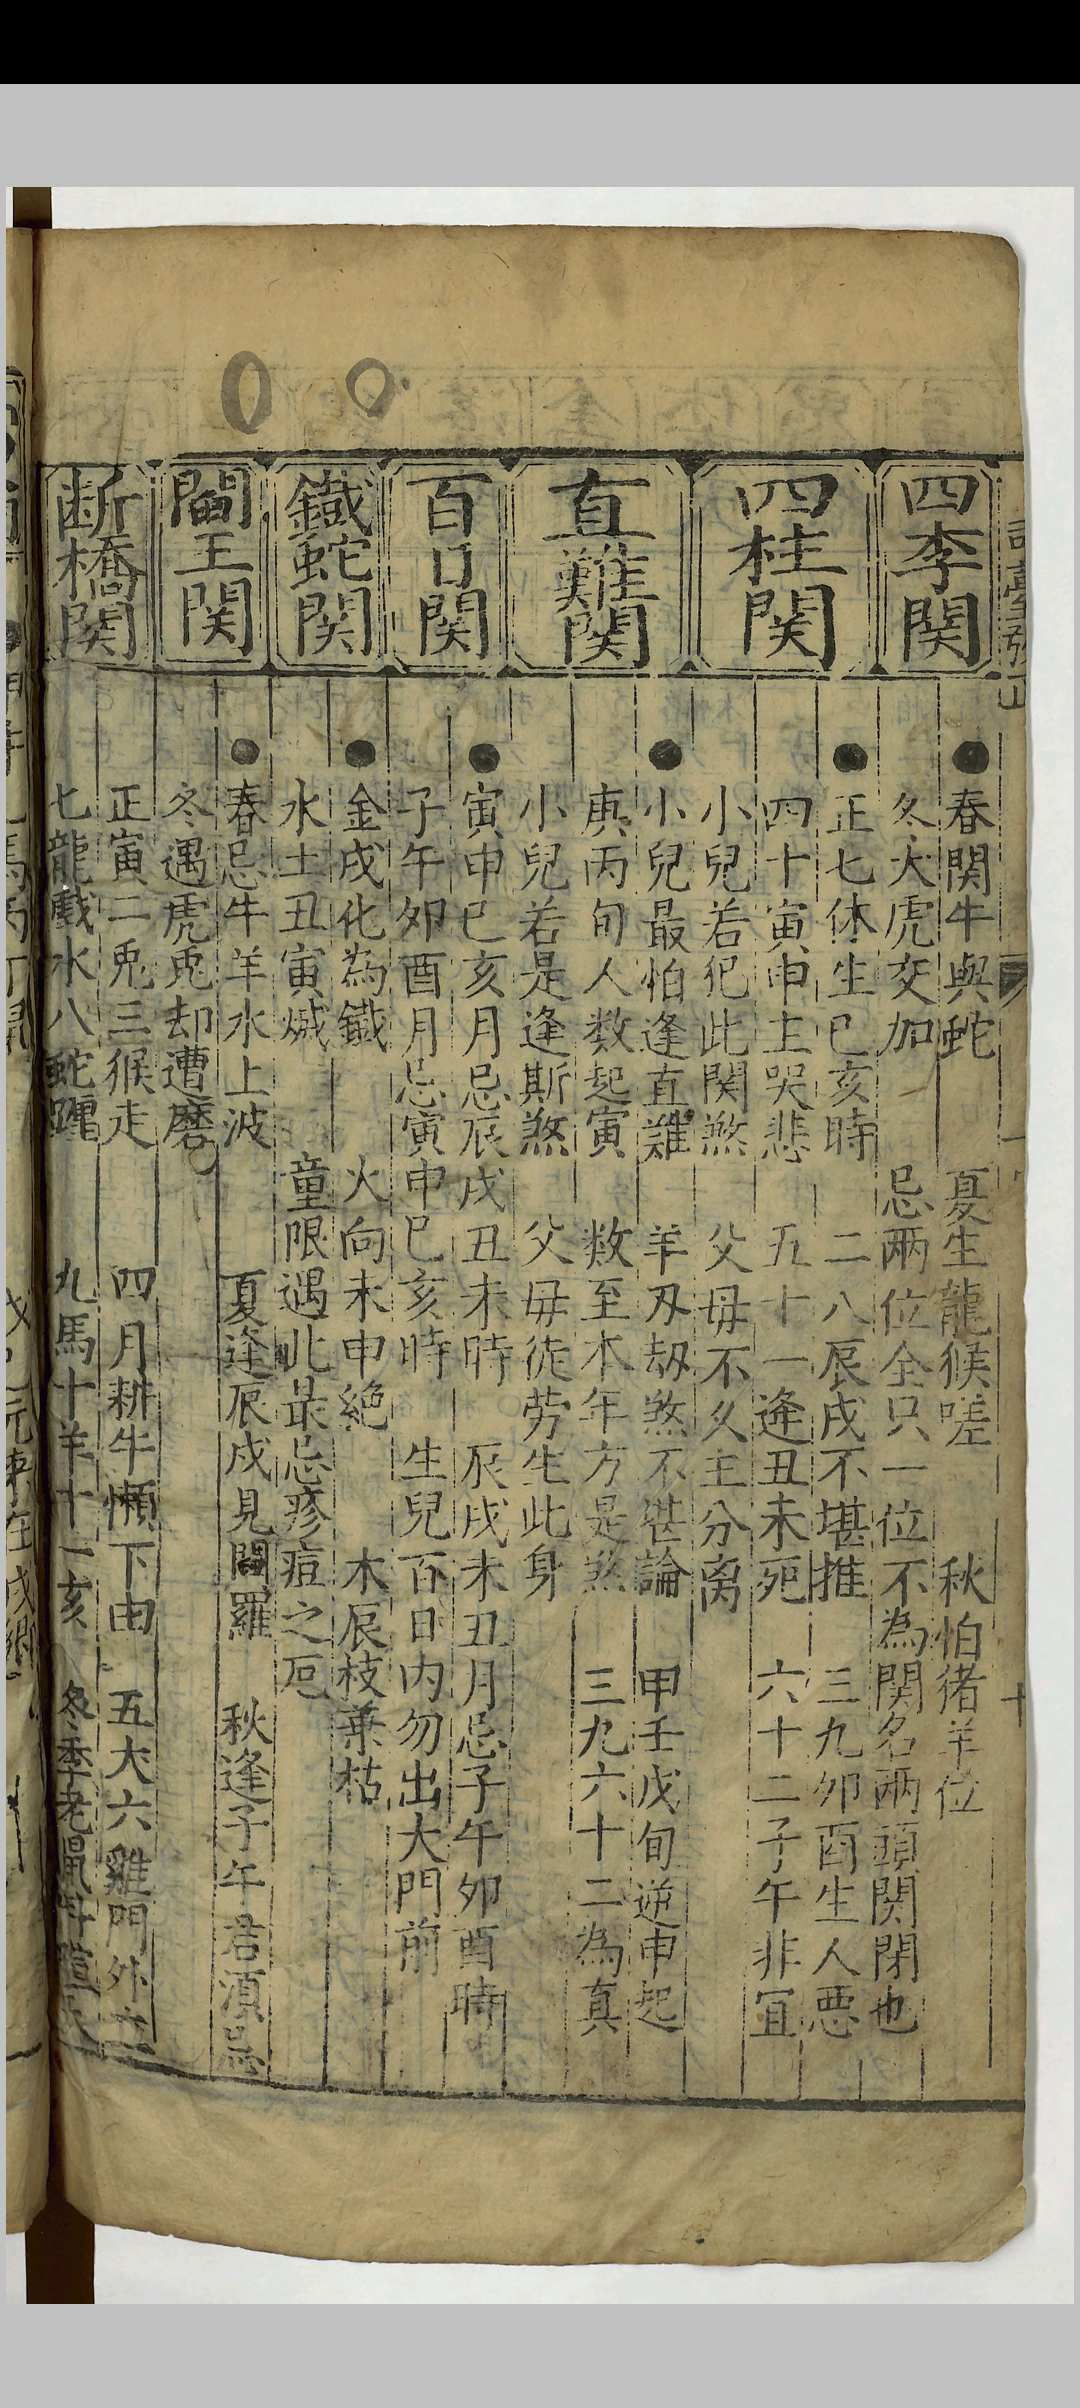 四季関
春関牛與蛇　夏生龍猴嗟　秋怕猪羊位
冬犬虎交加　忌兩位全只一位不為関名兩頭関閉也
四柱関
正七休生巳亥時　二八辰戌不堪推　三九卯酉生人悪
四十寅申主哭悲　五十一逢丑未死　六十二子午非宜
小兒若犯此関煞　父母不久主分离
直難関
小兒最怕逢直難　羊刃劫煞不堪論　甲壬戊旬逆申起
庚丙旬人数起寅　数至本年方是煞　三九六十二為真
小兒若是逢斯煞　父母徒劳生此身
百日関
寅申巳亥月忌辰戌丑未時　辰戌未丑月忌子午卯酉時
子午卯酉月忌寅申巳亥時　生兒百日内勿出大門前
鐵蛇関
金戌化為鐵　火向未申絶　木辰枝葉枯
水土丑寅滅　童限遇此最忌疹痘之厄
閻王関
春忌牛羊水上波　夏逢辰戌見閻羅　秋逢子午君須忌
冬遇虎兎却遭磨
断橋関
正寅二兎三猴走　四月耕牛懶下田　五犬六雞門外立
七龍戲水八蛇躔　九馬十羊十一亥　冬季老鼠